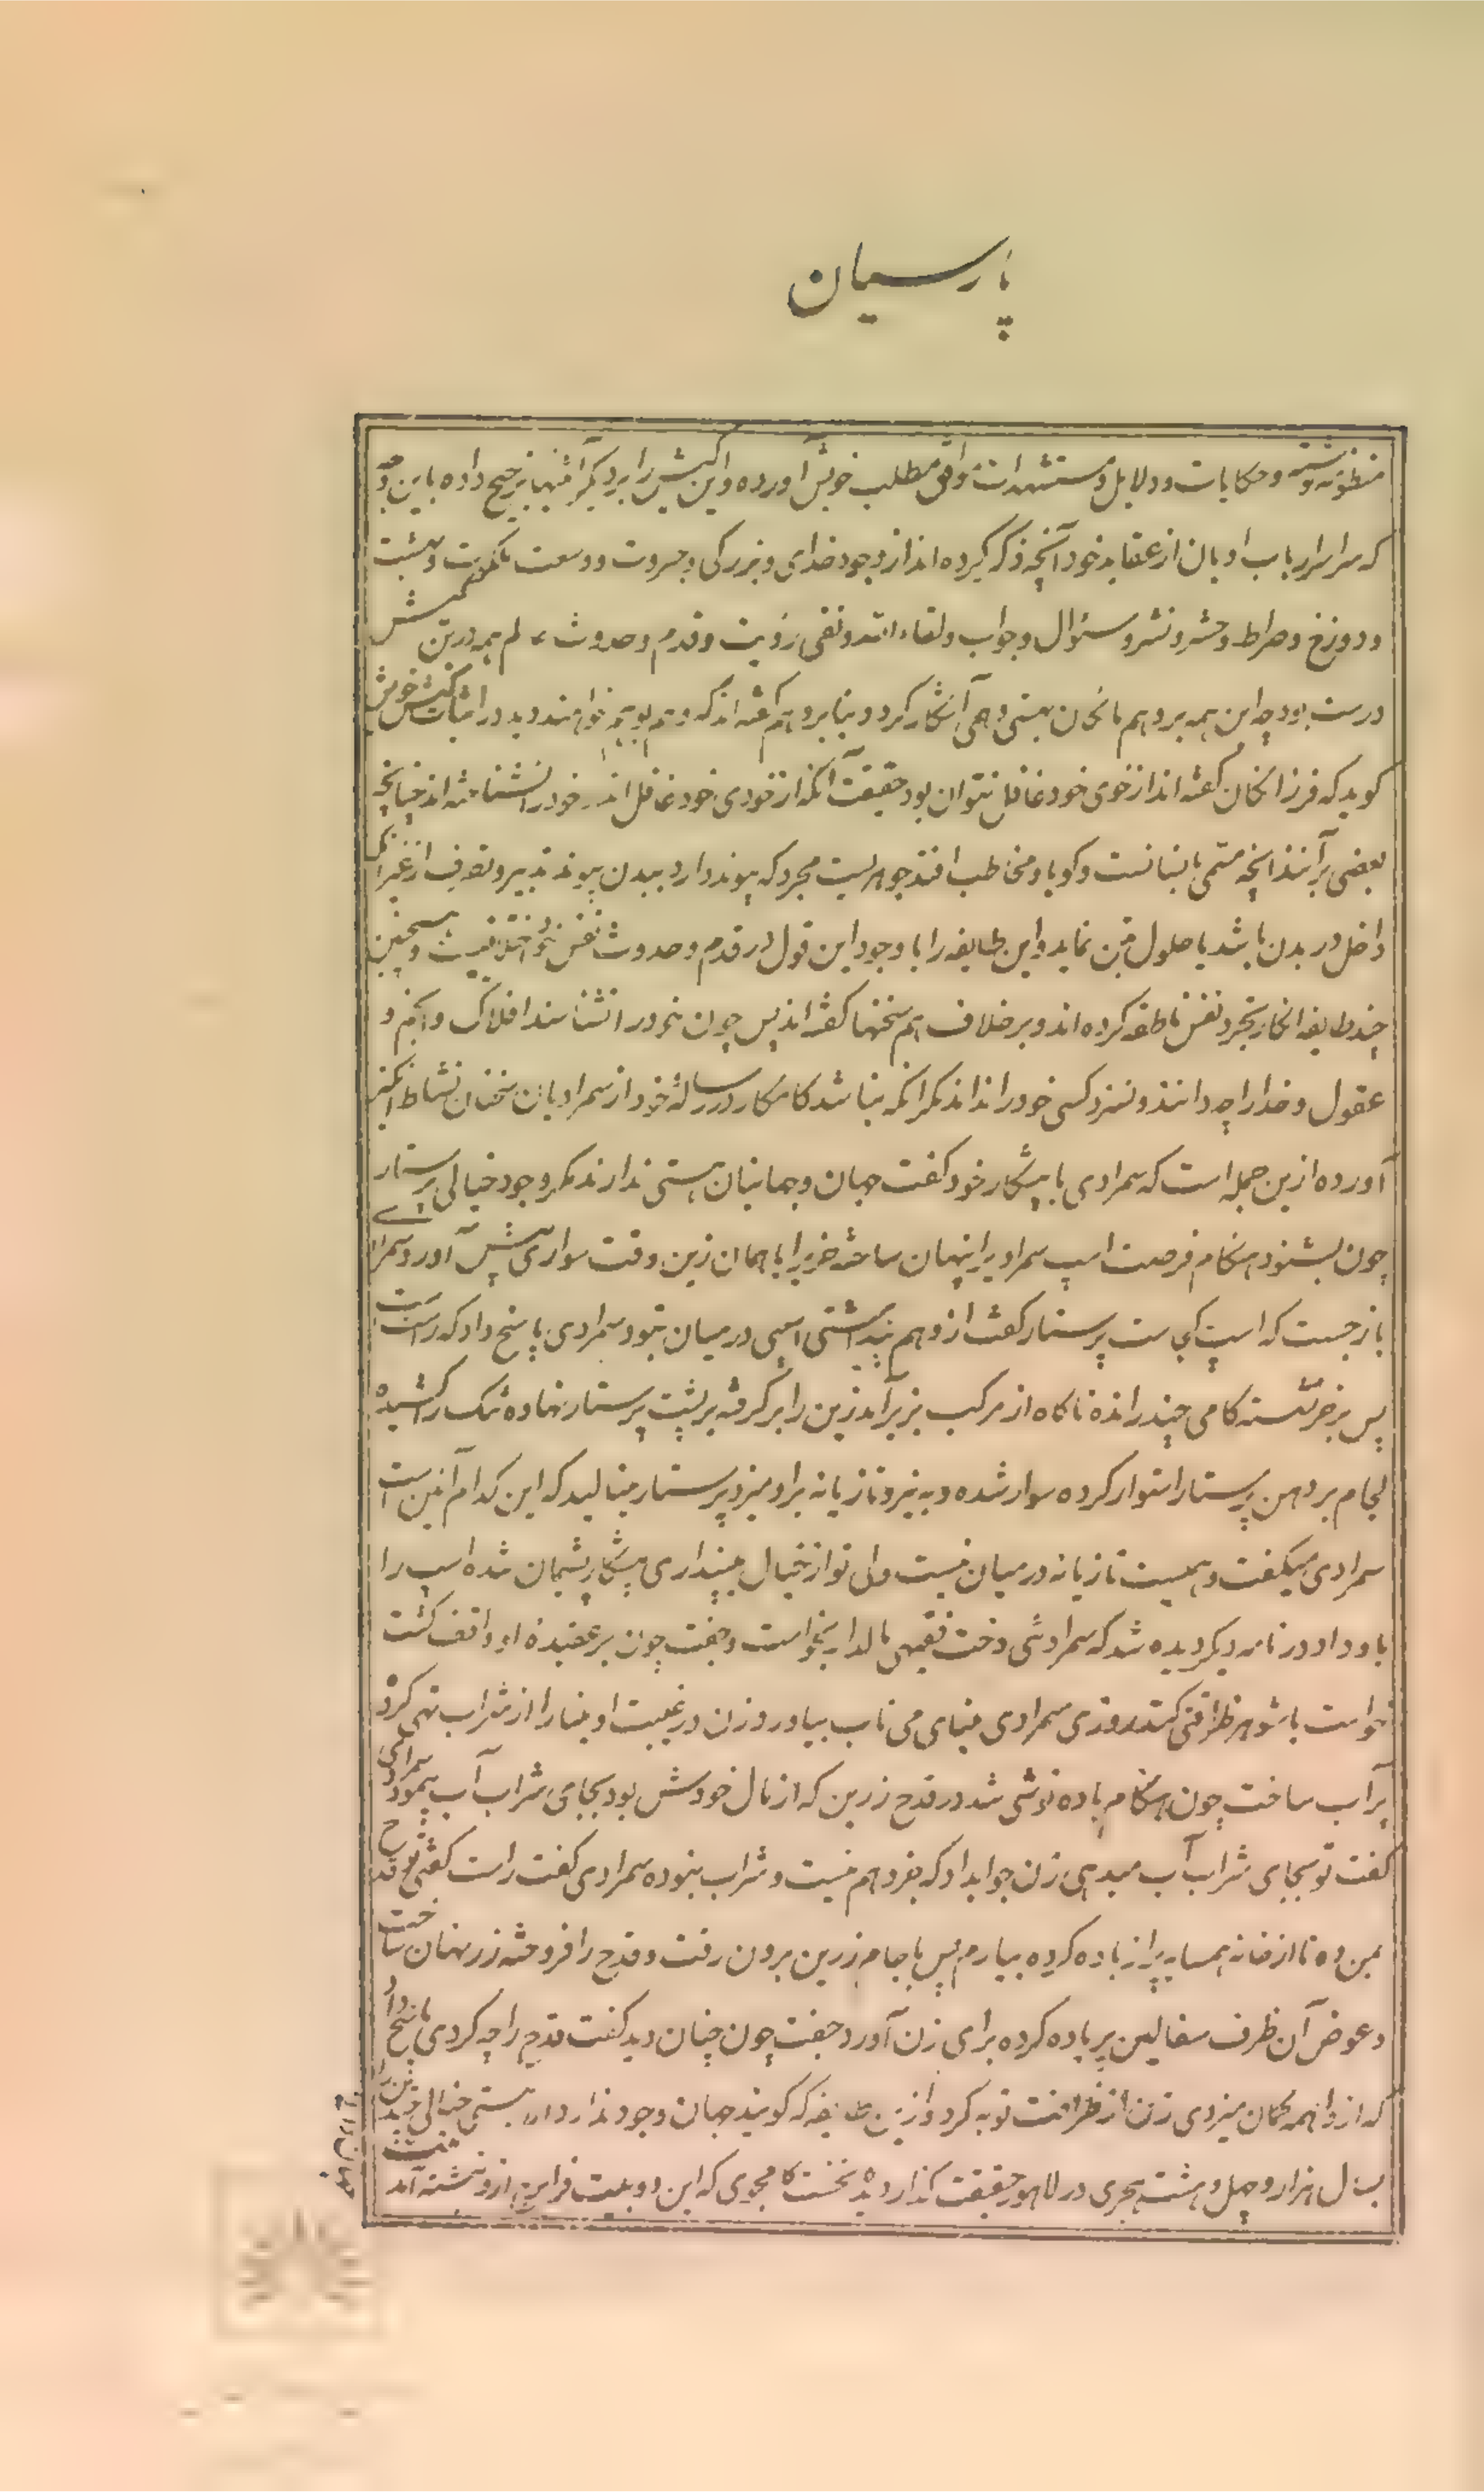 پارسیان
منظومه نوشته و حکایات و دلایل و مستشهدات وافی مطلب خویش آورده و این کیش را بر دیگر آئینها ترجیح داده باین وجه
که سراسر ارباب ادیان از عقاید خود آنچه ذکر کرده‌اند از وجود خدای و بزرگی و جبروت و وسعت ملکوت و بهشت
و دوزخ و صراط و حشر و نشر و سئوال و جواب و لقاء الله و نفی رؤیت و قدم و حدوث عالم همه درین کیش
درست بود چه این همه بر وهم ... هستی وهمی آشکار کرد و بنابر وهم گفته‌اند که وهم ... در اثبات کیش خویش
گوید که فرزانگان گفته‌اند از خوی خود غافل نتوان بود حقیقت آنکه از خودی خود غافل‌اند خود را نشناخته‌اند چنانچه
بعضی برآنند آنچه مسمی بانسانست و گویا و مخاطب افتد جوهریست مجرد که پیوند دارد ببدن پیوند تدبیر و تصرف از غیر آنکه
داخل در بدن باشد یا حلول درین نماید و این طایفه را با وجود این قول در قدم و حدوث نفس نحو اختلافیست و همچنین
چند طایفه انکار تجرد نفس ناطقه کرده‌اند و بر خلاف هم سخنها گفته‌اند پس چون خود را نشناسند افلاک و انجم و
عقول و خدا را چه دانند و نسزد کسی خود را نداند مگر آنکه نباشد کامکار در رسالهٔ خود از سمرادیان سخنان نشاط انگیز
آورده ازین جمله است که سمرادی با پیشکار خود گفت جهان و جهانیان هستی ندارند مگر وجود خیالی پرستار
چون بشنود هنگام فرصت اسپ سمرادی را پنهان ساخته خر را با همان زین وقت سواری پیش آورد و سمرادی
باز جست که اسپ کجاست پرستار گفت از وهم پنداشتی اسپی در میان نبود سمرادی پاسخ داد که راست است
پس بر خر نشسته گامی چند رانده ناگاه از مرکب بزیر آمد زین را بر گرفته بر پشت پرستار نهاده تنگ را کشیده
لجام بر دهن پرستار استوار کرده سوار شده و به نیرو تازیانه بر او میزد پرستار مینالید که این کدام آئین است
سمرادی میگفت وهمیست تازیانه در میان نیست ولی تو از خیال میپنداری پیشکار پشیمان شده اسپ را
باو داد و در نامه دیگر دیده شد که سمرادیئی دخت فقیهی مالدار بخواست و جفت چون بر عقیدهٔ او واقف گشت
خواست با شوهر ظرافتی کند روزی سمرادی مینای می ناب بیاورد و زن در غیبت او مینا را از شراب تهی کرده
پر آب ساخت چون هنگام باده نوشی شد در قدح زرین که از مال خودش بود بجای شراب آب پیمود سمرادی
گفت تو بجای شراب آب میدهی زن جواب داد که بجز وهم نیست و شراب نبوده سمرادی گفت راست گفتی تو قدح
بمن ده تا از خانه همسایه پر از باده کرده بیارم پس با جام زرین برون رفت و قدح را فروخته زر نهان ساخت
و عوض آن ظرف سفالین پر باده کرده برای زن آورد جفت چون چنان دید گفت قدح زر را چه کردی پاسخ داد
که از واهمه گمان میبردی زن از ظرافت توبه کرد و ازین طایفه که گویند جهان وجود ندارد الا هستی خیالی
بسال هزار و چهل و هشت هجری در لاهور حقیقت گذار دید نخست کامجوی که این دو بیت فراین ازو نوشته آمد